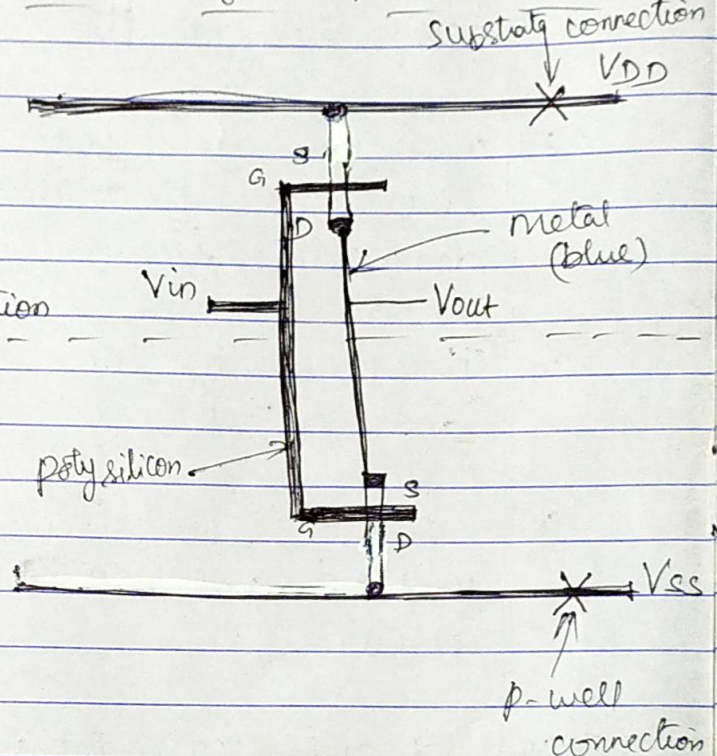 substraty connection
VDD
S
G
D
metal
(blue)
Vin
Vout
tion
polysilicon
S
G
D
VSS
p-well
connection